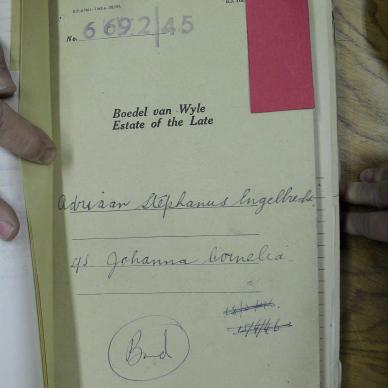 No. 6692/45
Boedel van Wyle
Estate of the Late
Adriaan Stephanus Engelbrecht
Johanna Cornelia
Bond